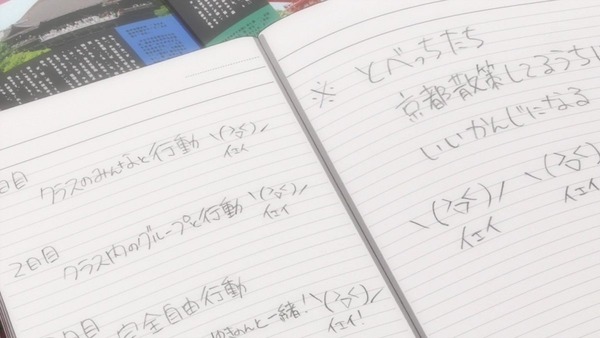 日目
クラスのみんなと行動 \(>ロ<)/
イェイ
2日目
クラス内のグループと行動 \(>ロ<)/
イェイ
日目
完全自由行動
ゆきのんと一緒！\(>ロ<)/
イェイ！
※ とべっちたち
京都散策してるうちに
いいかんじになる
\(>ロ<)/ \(>ロ<)
イェイ イェイ